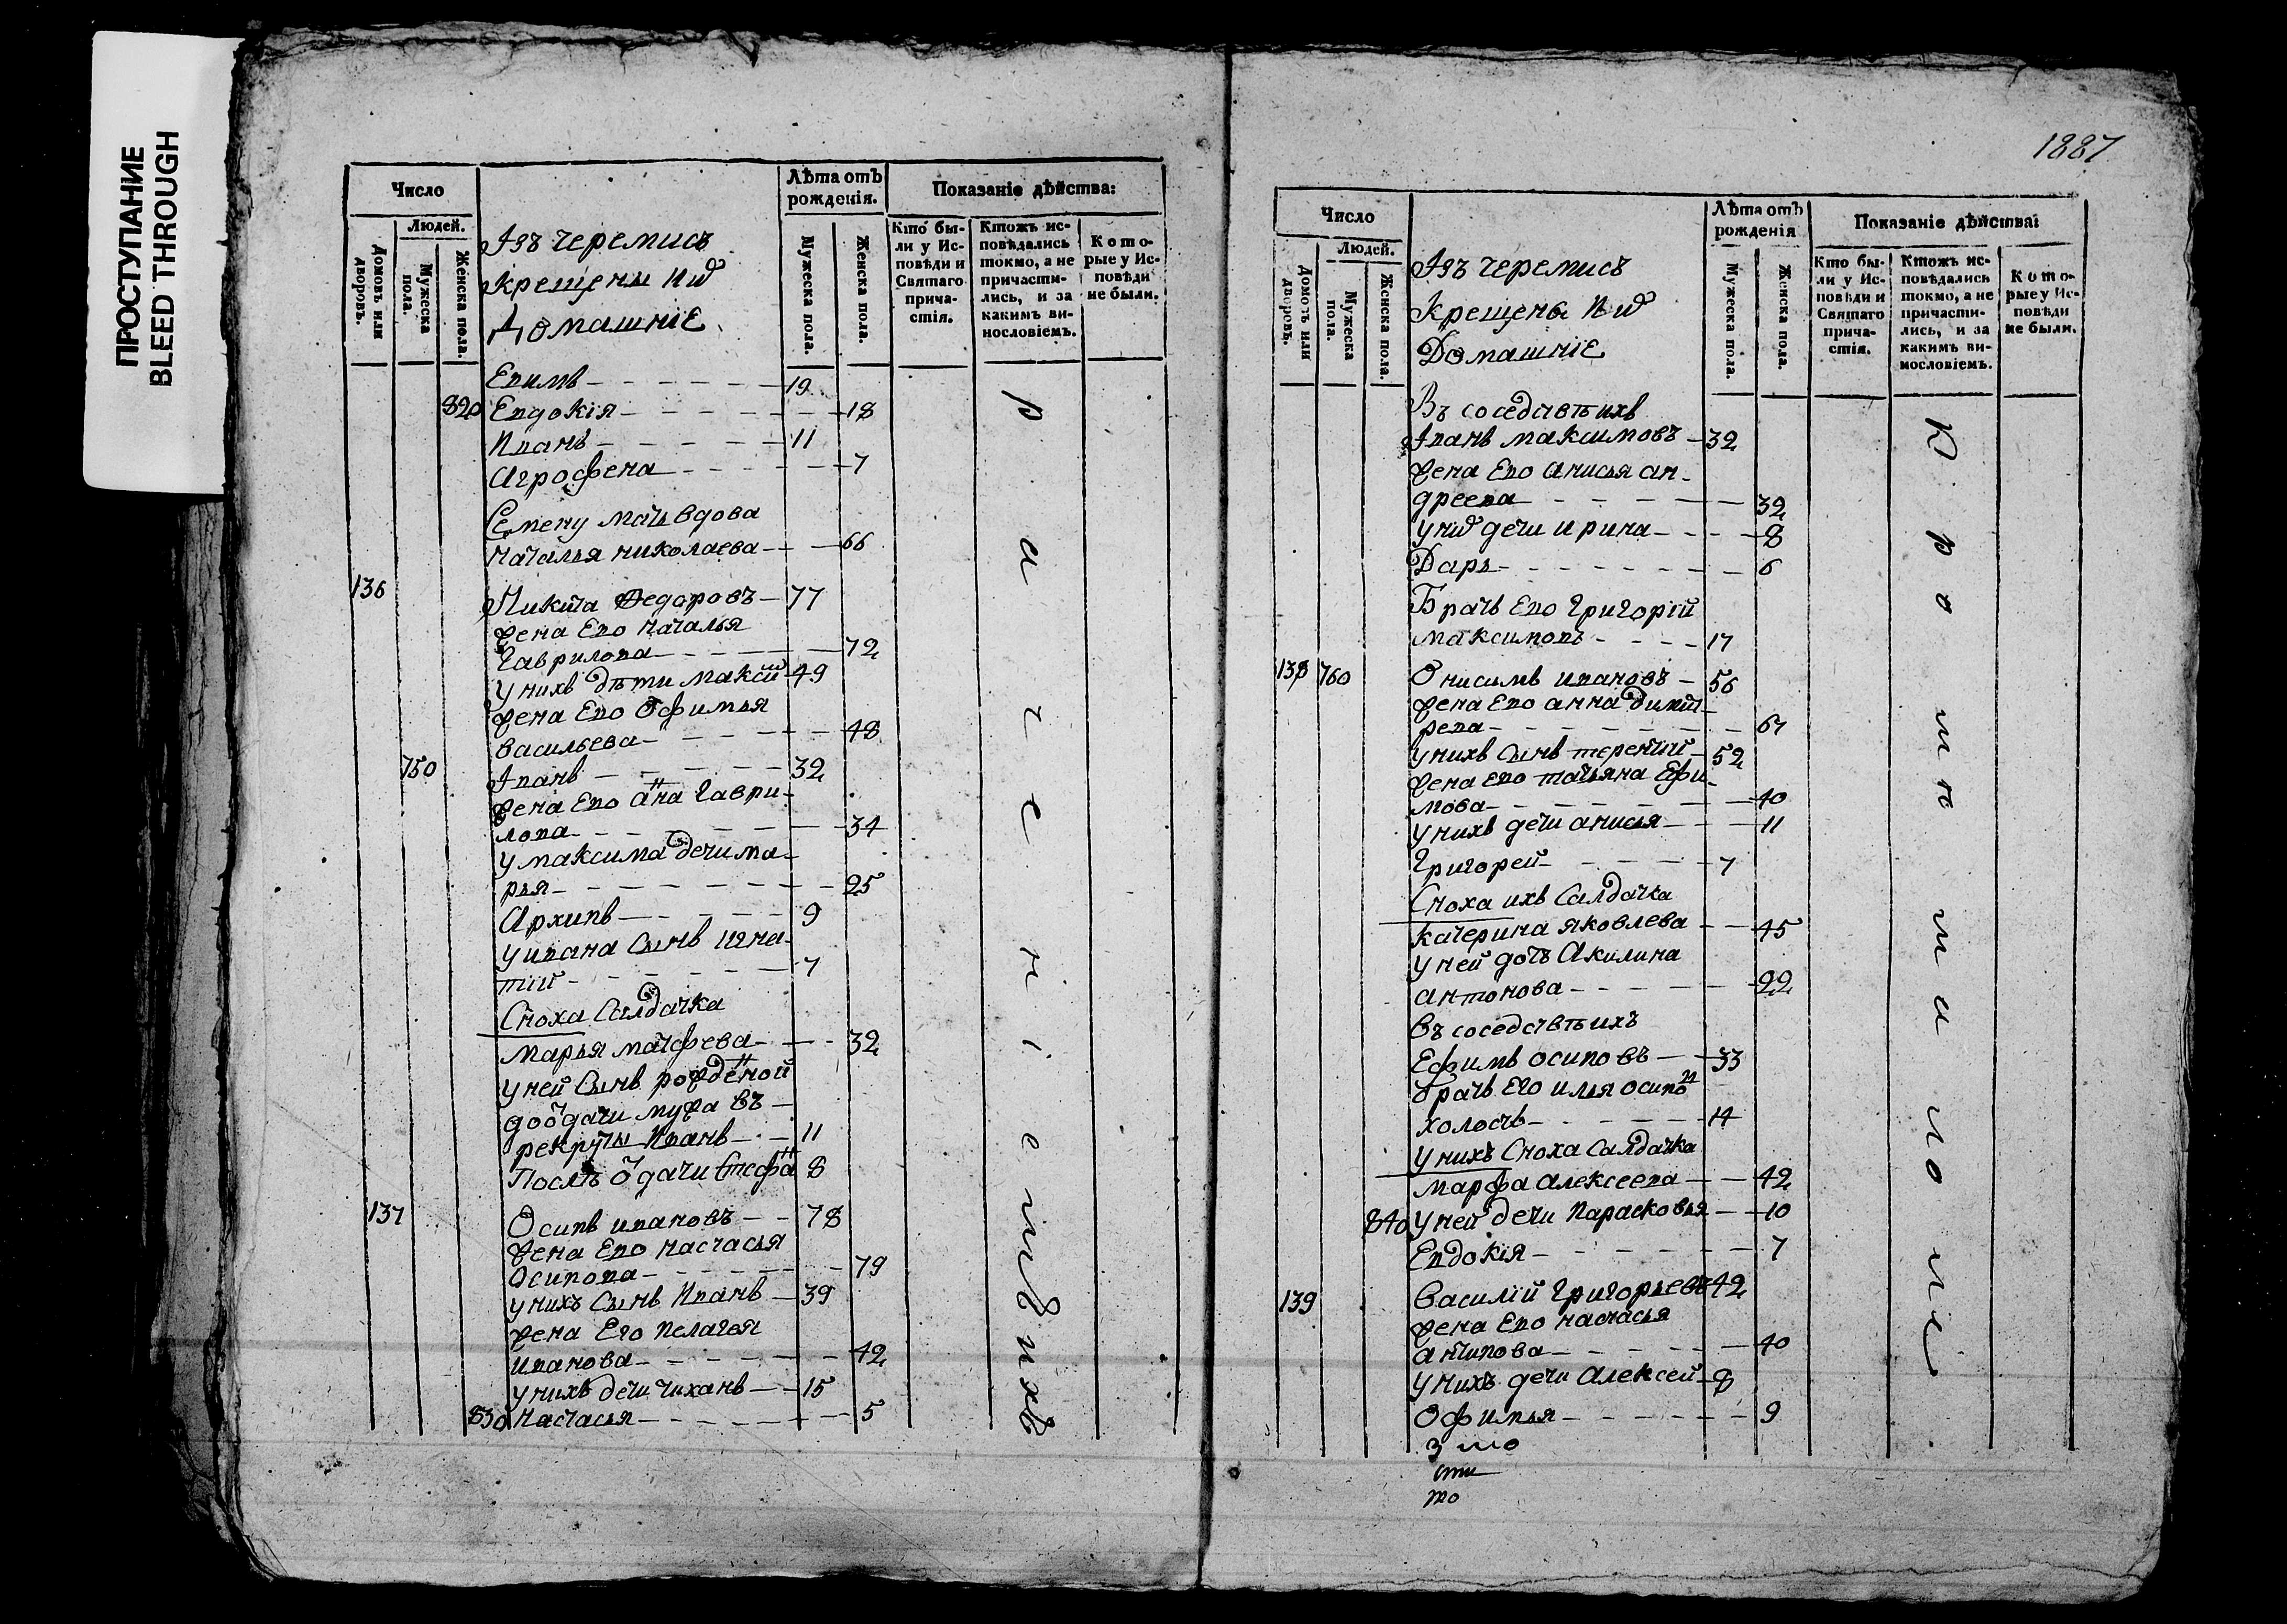 ПРОСТУПАНИЕ
BLEED THROUGH
Число
Людей.
Домовъ или дворовъ.
Мужеска пола.
Женска пола.
Изъ черемисъ
крещены и иⷯ
домашнїе
Лѣта отъ рожденія.
Мужеска пола.
Женска пола.
Показаніе дѣйства:
Кто бы-
ли у Ис-
повѣди и
Святаго
прича-
стія.
Ктожъ ис-
повѣдались
токмо, а не
причасти-
лись, и за
какимъ ви-
нословіемъ.
Кото-
рые у Ис-
повѣди
не были.
Евимъ 19
820 Евдокїя 18
Иванъ 11
Агрофена 7
Семену мать вдова
наталья николаева 66
136 Никита Федоровъ 77
жена Ево наталья
Гаврилова 72
у нихъ дѣти Максиⷨ 49
жена Ево Офимья
васильева 48
750 Иванъ 32
жена Ево анⷩа Гаври-
лова 34
у максима дети ма-
рья 25
Архипъ 9
у ивана сынъ Игна-
тїй 7
Сноха Салдатка
марья матфева 32
у ней сынъ рожденⷩой
до оⷮдачи мужа въ
рекруты Иванъ 11
Послѣ оⷮдачи Стефаⷩ 8
137 Осипъ ивановъ 78
жена Ево настасья
Осипова 79
у нихъ сынъ Иванъ 39
жена Его пелагея
иванова 42
у нихъ дети тиханъ 15
830 настасья 5
р а ч е н і е м ъ и х ъ
1887
Число
Людей.
Домовъ или дворовъ.
Мужеска пола.
Женска пола.
Изъ черемисъ
Крещены и иⷯ
Домашнїе
Лѣта отъ рожденія
Мужеска пола.
Женска пола.
Показаніе дѣйства:
Кто бы-
ли у Ис-
повѣди и
Святаго
прича-
стія.
Ктожъ ис-
повѣдались
токмо, а не
причасти-
лись, и за
какимъ ви-
нословіемъ.
Кото-
рые у Ис-
повѣди
не были.
Въ соседствѣ ихъ
Иванъ максимовъ 32
жена Ево анисья ан-
дреева 32
у ниⷯ дети ирина 8
Дарь 6
Братъ Ево Григорїй
максимовъ 17
138 760 Онисимъ ивановъ 56
жена Ево анна
рева 67
у нихъ сынъ терентїй 52
жена ево татьяна Ефи-
мова 40
у нихъ дети анисья 11
Григорей 7
Сноха ихъ Салдатка
катерина яковлева 45
у ней дочь Акилина
антонова 22
въ соседствѣ ихъ
Ефимъ осиповъ 33
братъ Его илья осипоⷡ
холостъ 14
у нихъ Сноха Салдатка
марфа алексеева 42
840 у ней дети парасковья 10
Евдокїя 7
139 василїй Григорьевъ 42
жена Ево настасья
антипова 40
у нихъ дети Алексей 8
Офимья 9
К р о т ю м а л о л е
сти
то